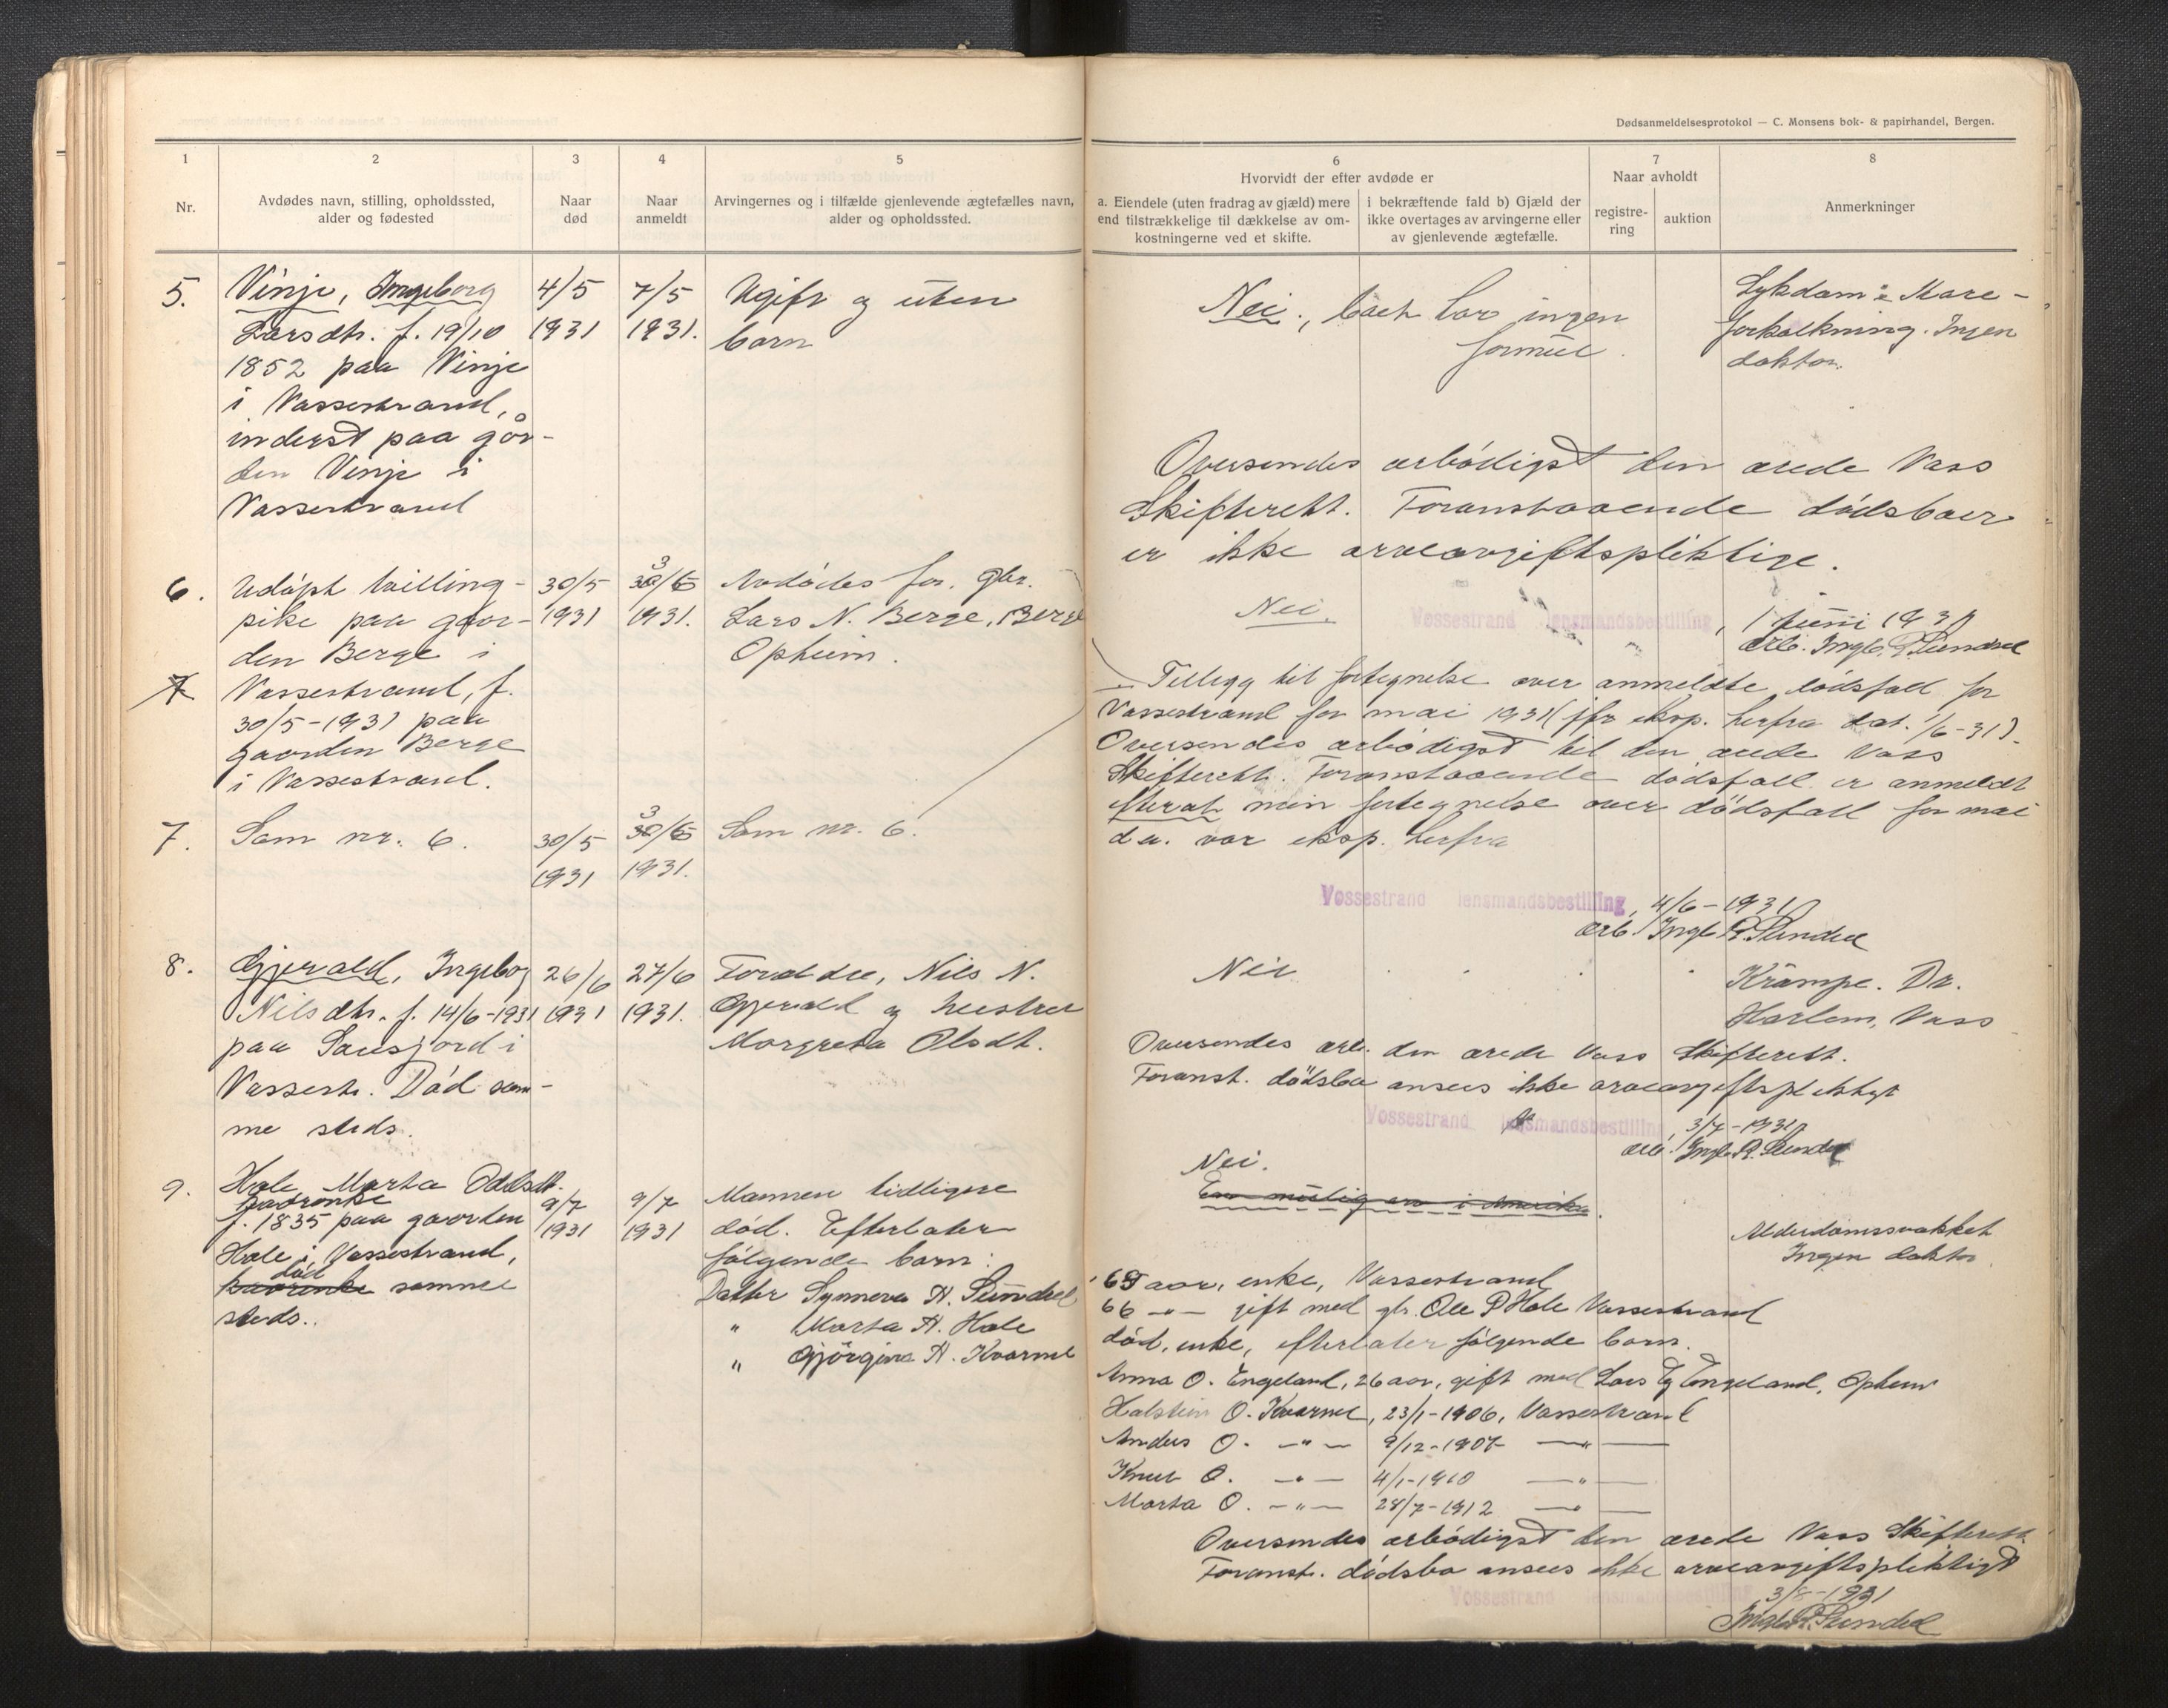 Dødsanmeldelsesprotokol — C. Monsens bok- & papirhandel, Bergen.
1
2
3
4
5
Nr.
Avdødes navn, stilling, opholdssted,
alder og fødested
Naar
død
Naar
anmeldt
Arvingernes og i tilfælde gjenlevende ægtefælles navn,
alder og opholdssted.
6
7
8
Hvorvidt der efter avdøde er
Naar avholdt
a. Eiendele (uten fradrag av gjæld) mere
end tilstrækkelige til dækkelse av om-
kostningerne ved et skifte.
i bekræftende fald b) Gjæld der
ikke overtages av arvingerne eller
av gjenlevende ægtefælle.
registre-
ring
auktion
Anmerkninger
5.
Vinje, Ingeborg
Larsdtr. f. 19/10
1852 paa Vinje
i Vassestrand,
inderst paa går-
den Vinje i
Vassestrand
4/5
1931
7/5
1931.
Ugift og uten
barn
Nei., boet har ingen
formue.
Sykdom: Åre-
forkalkning. Ingen
doktor.
Oversendes ærbødigst den ærede Vass
Skifterett. Foranstaaende dødsboer
er ikke arveavgiftspliktige.
Vossestrand lensmandsbestilling, 1 juni 1931
ærb. Ingb. P. Sundsel
6.
Udøpt tvilling-
pike paa gaar-
den Berge i
Vassestrand, f.
30/5-1931 paa
gaarden Berge
i Vassestrand.
30/5
1931
3/6
1931.
Avdødes for. gbr.
Lars N. Berge, Berge
Opheim.
Nei.
7
Tillegg til fortegnelse over anmeldte dødsfall for
Vassestrand for mai 1931 (jfr eksp. herfra dat. 1/6-31).
Oversendes ærbødigst til den ærede Vass
Skifterett. Foranstaaende dødsfall er anmeldt
efterat min fortegnelse over dødsfall for mai
d.a. var eksp. herfra
Vossestrand lensmandsbestilling, 4/6-1931
ærb. Ingb. P. Sundsel
7.
Som nr. 6.
30/5
1931
3/6
1931.
Som nr. 6.
8.
Gjerald, Ingebog
Nilsdtr. f. 14/6-1931
paa Sausjord i
Vassestr. Død sam-
me steds.
26/6
1931
27/6
1931.
Foreldre, Nils N.
Gjerald og hustru
Margreta Olsdt.
Nei
Krampe. Dr.
Harlem, Vass
Oversendes ærb. den ærede Vass Skifterett.
Foranst. dødsbo ansees ikke arveavgiftspliktigt
Vossestrand lensmandsbestilling 3/7-1931
ærb. Ingb. P. Sundsel
9.
Hole, Marta Oddsdt.
kaarenke
f. 1835 paa gaarden
Hole i Vassestrand,
død
kaarenke samme
steds.
9/7
1931
9/7
1931
Mannen tidligere
død. Efterlater
følgende barn:
Datter Synneva A. Sundsel
" Marta A. Hole
" Gjörgina A. Kvarme
Nei.
Alderdomssvakhet
Ingen doktor
65 aar, enke, Vassestrand
66 —"— gift med gbr. Ole P Hole Vassestrand
død, enke, efterlater følgende barn.
Anna O. Engeland, 26 aar, gift med Lars Engeland, Opheim
Halstein O. Kvarme, 23/1-1906, Vassestrand
Anders O. —"— 9/12-1907 —"—
Knut O. —"— 4/1-1910 —"—
Marta O. —"— 28/7-1912 —"—
Oversendes ærbødigst den ærede Vass Skifterett.
Foranst. dødsbo ansees ikke arveavgiftspliktigt
Vossestrand lensmandsbestilling 3/8-1931
Ingb. P. Sundsel